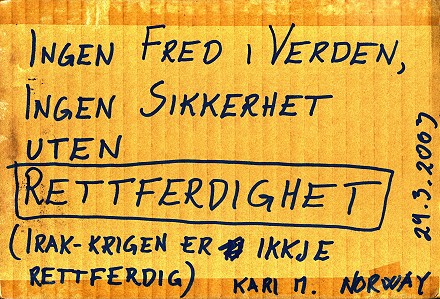 INGEN FRED I VERDEN,
INGEN SIKKERHET
UTEN
RETTFERDIGHET
(IRAK-KRIGEN ER IKKJE
RETTFERDIG)
KARI M. NORWAY
29.3.2007